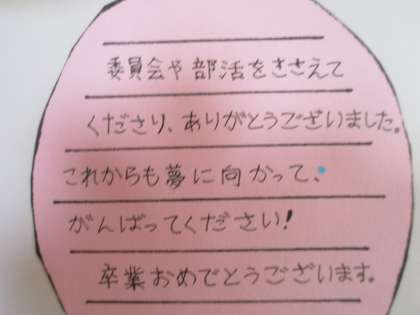 委員会や部活をささえて
くださり、ありがとうございました。
これからも夢に向かって、
がんばってください!
卒業おめでとうございます。